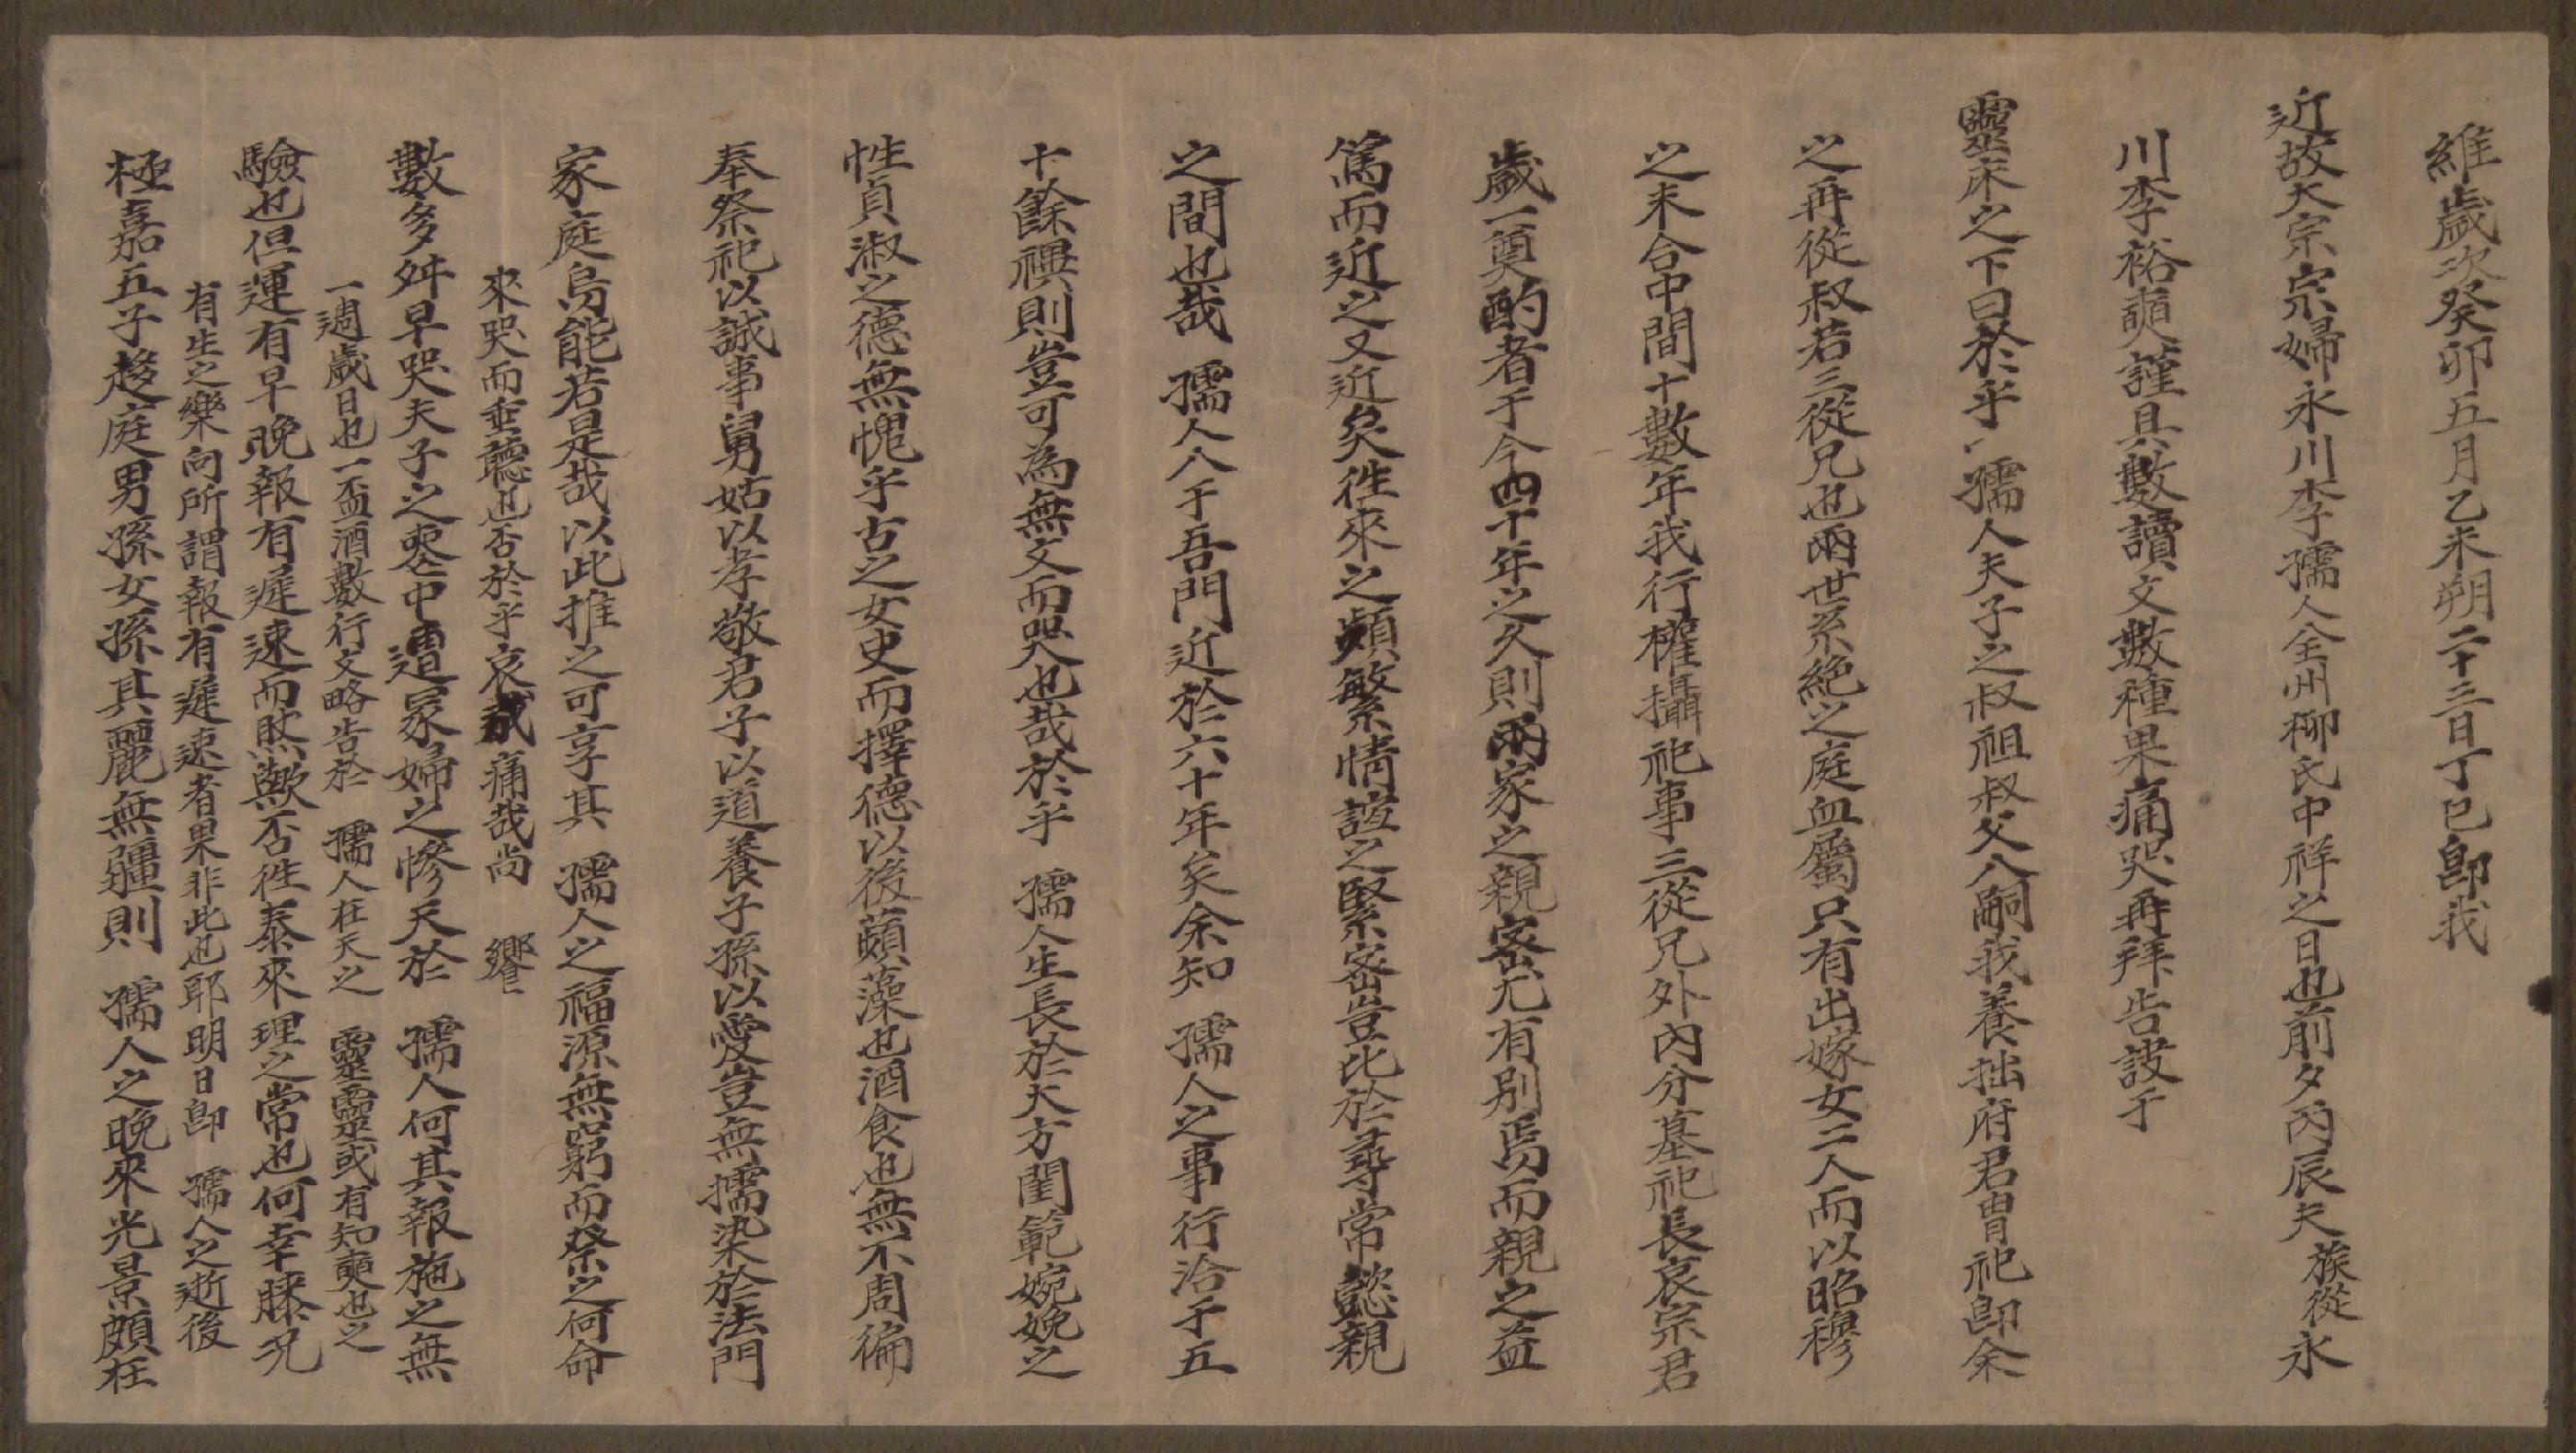 維歲次癸卯五月乙未朔二十三日丁巳卽我
近故大宗宗婦永川李孺人全州柳氏中祥之日也前夕丙辰夫族從永
川李裕奭謹具數讀文數種果痛哭再拜告訣于
靈床之下曰於乎 孺人夫子之叔祖叔父入嗣我養拙府君胄祀卽余
之再從叔若三從兄也兩世系絶之庭血屬只有出嫁女二人而以昭穆
之未合中間十數年我行權攝祀事三從兄外內分墓祀長哀宗君
歲一奠酌者于今四十年之久則兩家之親密尤有別焉而親之益
篤而近之又近矣徃來之頻繁情誼之緊密豈比於尋常懿親
之間也哉 孺人入于吾門近於六十年矣余知 孺人之事行洽于五
十餘禩則豈可為無文而哭也哉於乎 孺人生長於大方閨範婉娩之
性貞淑之德無愧乎古之女史而擇德以後蘋藻也酒食也無不周徧
奉祭祀以誠事舅姑以孝敬君子以道養子孫以愛豈無擩染於法門
家庭烏能若是哉以此推之可享其 孺人之福源無窮而祭之何命
數多舛早哭夫子之喪中遭冢婦之慘天於 孺人何其報施之無
驗也但運有早晩報有遲速而肰歟否徃泰來理之常也何幸膝況
極嘉五子趍庭男孫女孫其麗無疆則 孺人之晩來光景頗在
有生之樂向所謂報有遲速者果非此也耶明日卽 孺人之逝後
一週歲日也一盃酒數行文略告於 孺人在天之 靈靈或有知奭也之
來哭而垂聽也否於乎哀哉痛哉尚 饗